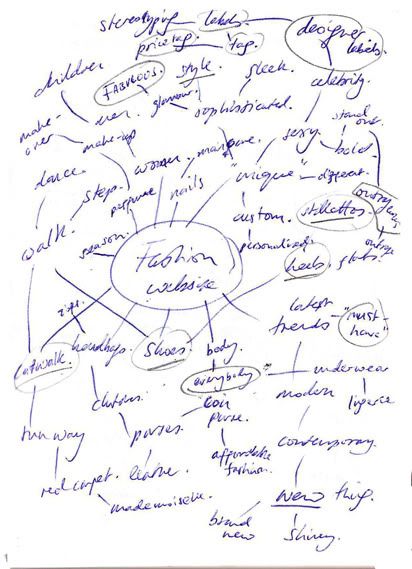 stereotyping labels
designer labels
price tag tag
children
FABULOUS style sleek celebrity
glamour
make-over men sophisticated stand out
make-up sexy bold
dance women manicure
steps "unique" different
perfume nails
walk custom stilettos
season personalised outrage
Fashion website
heels
latest trends "must-have"
catwalk handbags shoes body
everybody underwear
clutches coin purse modern
lingerie
runway purses
affordable fashion contemporary
red carpet
mademoiselle new thing
brand new shiney